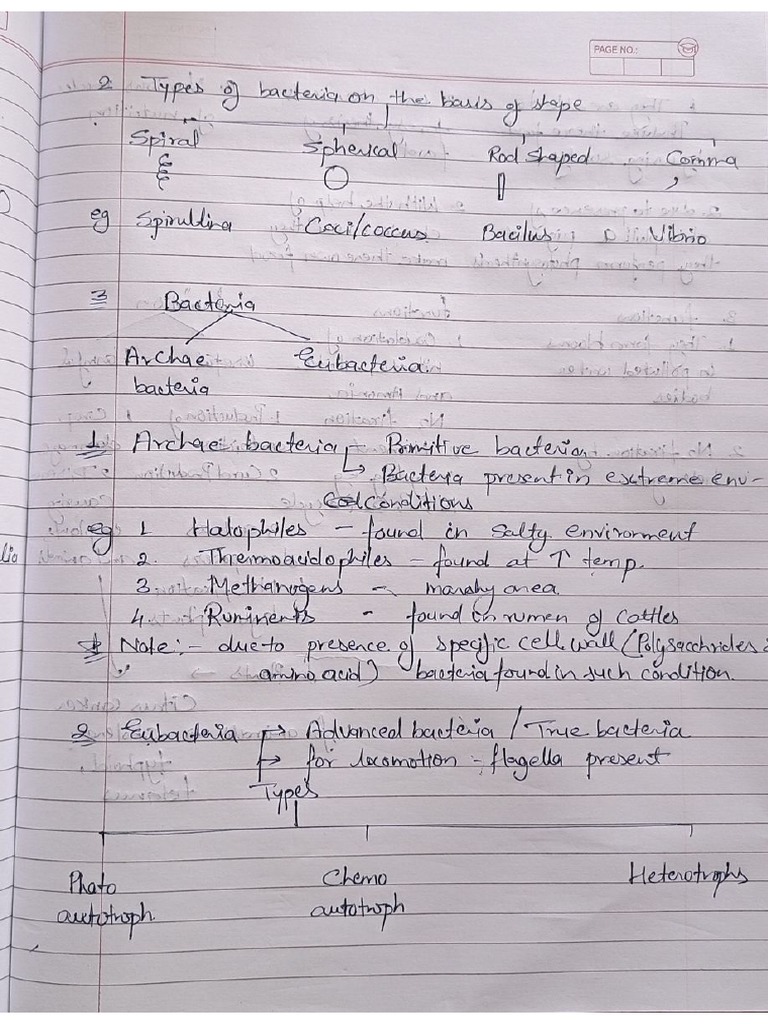 PAGE NO.:
2 Types of bacteria on the basis of shape
Spiral Spherical Rod shaped Comma
eg Spirullina Cocci/coccus Bacilus Vibrio
3 Bacteria
Archae Eubacteria
bacteria
1. Archae bacteria Primitive bacteria
Bacteria present in extreme env-
conditions
eg 1 Halophiles - found in salty enviroment
2. Thermoacidophiles - found at ↑ temp.
3. Methanogens - marshy area
4. Ruminents - found in rumen of cattles
* Note :- due to presence of specific cell wall (Polysacchrides &
amino acid) bacteria found in such condition.
2 Eubacteria → Advanced bacteria / True bacteria
→ for locomotion - flagella present
Types
Photo Chemo Heterotrophs
autotroph autotroph